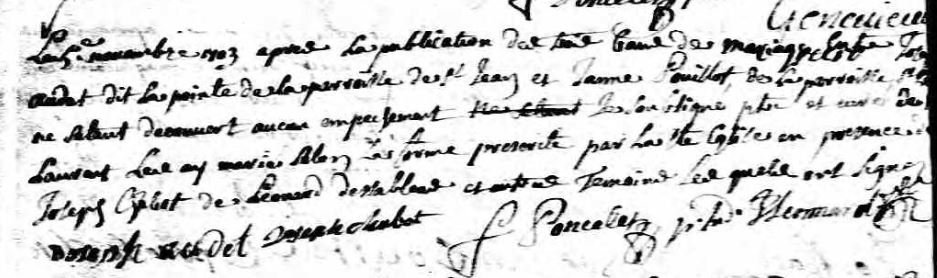 Genevieve
novembre 1703 apres la publication des trois bans de mariage entre
audet dit la pointe de la parroisse de St Jean et Janne Pouillot de la parroisse St
ne setant decouvert aucun empechement Je soussigné ptre et curé de
Laurent Les ay mariés selon La forme prescrite par La Ste Eglise en presence
Joseph Chabot de Leonard et autres Temoins Les quels ont signez
Joseph audet Joseph Chabot f Poncelet